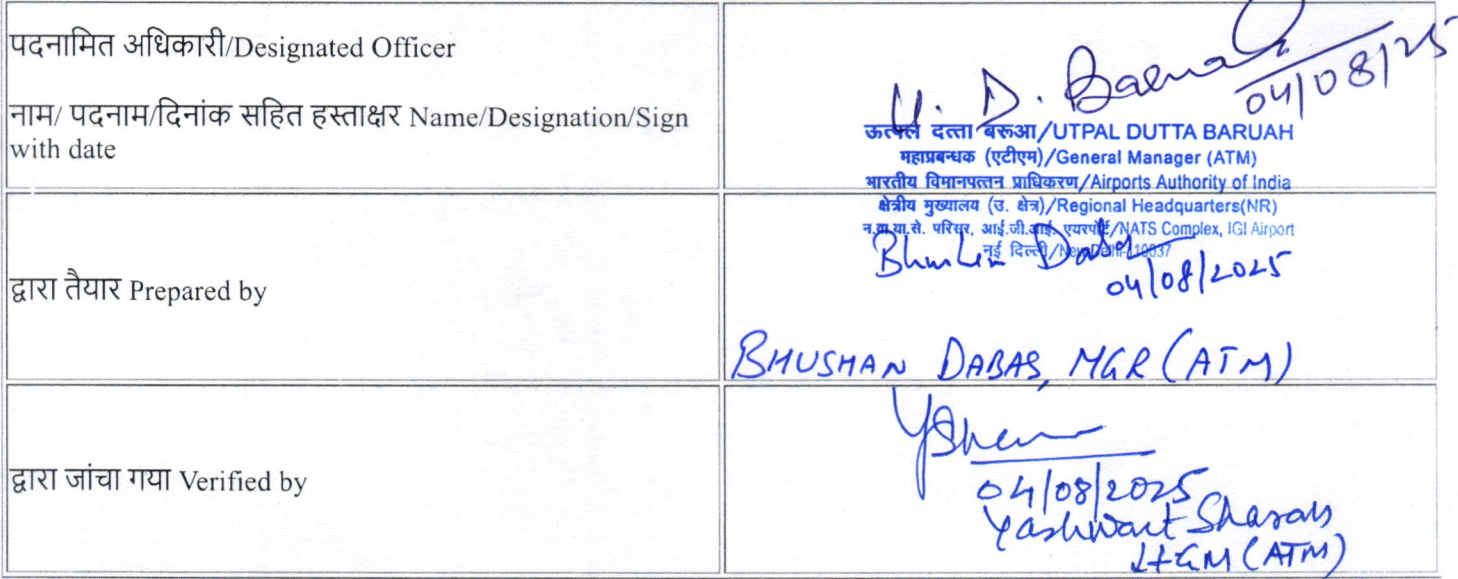 पदनामित अधिकारी/Designated Officer
नाम/ पदनाम/दिनांक सहित हस्ताक्षर Name/Designation/Sign
with date
U. D. Baruah
04/08/25
उत्पल दत्ता बरूआ/UTPAL DUTTA BARUAH
महाप्रबन्धक (एटीएम)/General Manager (ATM)
भारतीय विमानपत्तन प्राधिकरण/Airports Authority of India
क्षेत्रीय मुख्यालय (उ. क्षेत्र)/Regional Headquarters(NR)
परिसर, आई.जी.आई. एयरपोर्ट/NATS Complex, IGI Airport
नई दिल्ली/New Delhi-110037
द्वारा तैयार Prepared by
Bhushan Dabas
04/08/2025
BHUSHAN DABAS, MGR (ATM)
द्वारा जांचा गया Verified by
04/08/2025
Yashwant
(ATM)